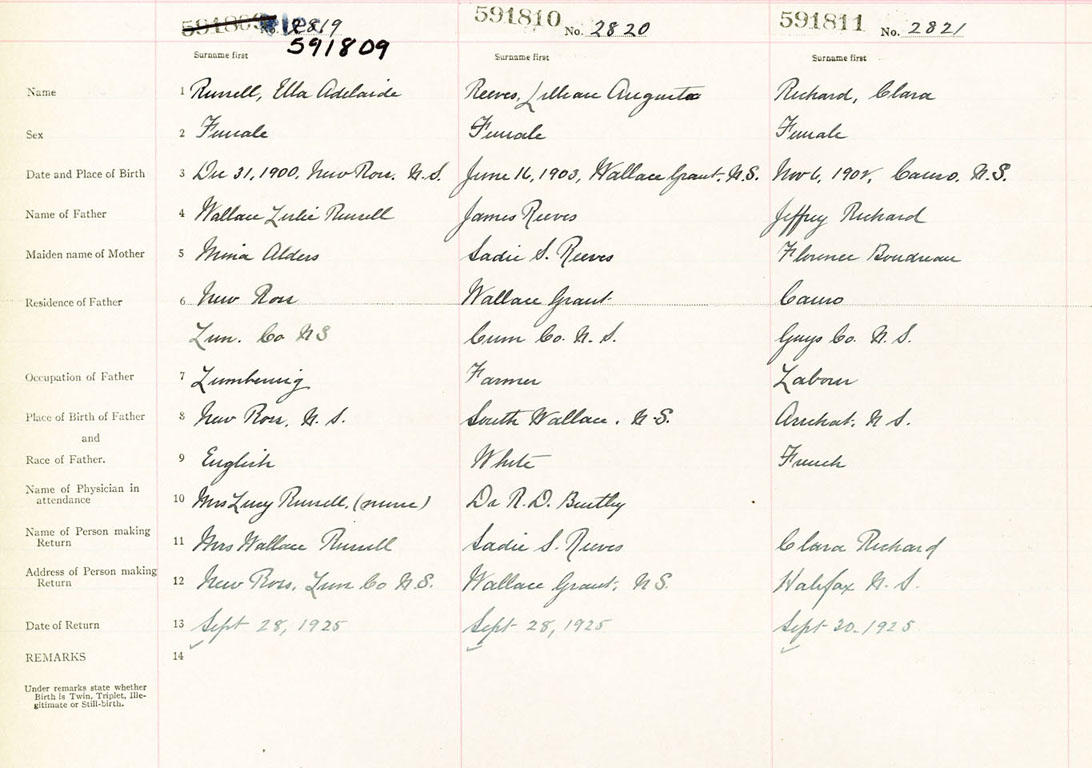 591809 No. 2819 591810 No. 2820 591811 No. 2821
591809
Surname first Surname first Surname first
Name 1 Russell, Ella Adelaide Reeves, Lillian Augusta Richard, Clara
Sex 2 Female Female Female
Date and Place of Birth 3 Dec 31, 1900, New Ross, N.S. June 16, 1903, Wallace Grant, N.S. Nov 6, 1902, Canso, N.S.
Name of Father 4 Wallace Leslie Russell James Reeves Jeffrey Richard
Maiden name of Mother 5 Mina Alders Sadie S. Reeves Florence Boudreau
Residence of Father 6 New Ross Wallace Grant Canso
Lun. Co N S Cum Co. N. S. Guys Co. N. S.
Occupation of Father 7 Lumbering Farmer Labour
Place of Birth of Father 8 New Ross, N. S. South Wallace, N.S. Arichat, N S.
and
Race of Father. 9 English White French
Name of Physician in
attendance 10 Mrs Lucy Russell, (nurse) Dr R. D. Bentley
Name of Person making
Return 11 Mrs Wallace Russell Sadie S. Reeves Clara Richard
Address of Person making
Return 12 New Ross, Lun Co N.S. Wallace Grant, N.S. Halifax N. S.
Date of Return 13 Sept 28, 1925 Sept 28, 1925 Sept 30. 1925
REMARKS 14
Under remarks state whether
Birth is Twin, Triplet, Ille-
gitimate or Still-birth.